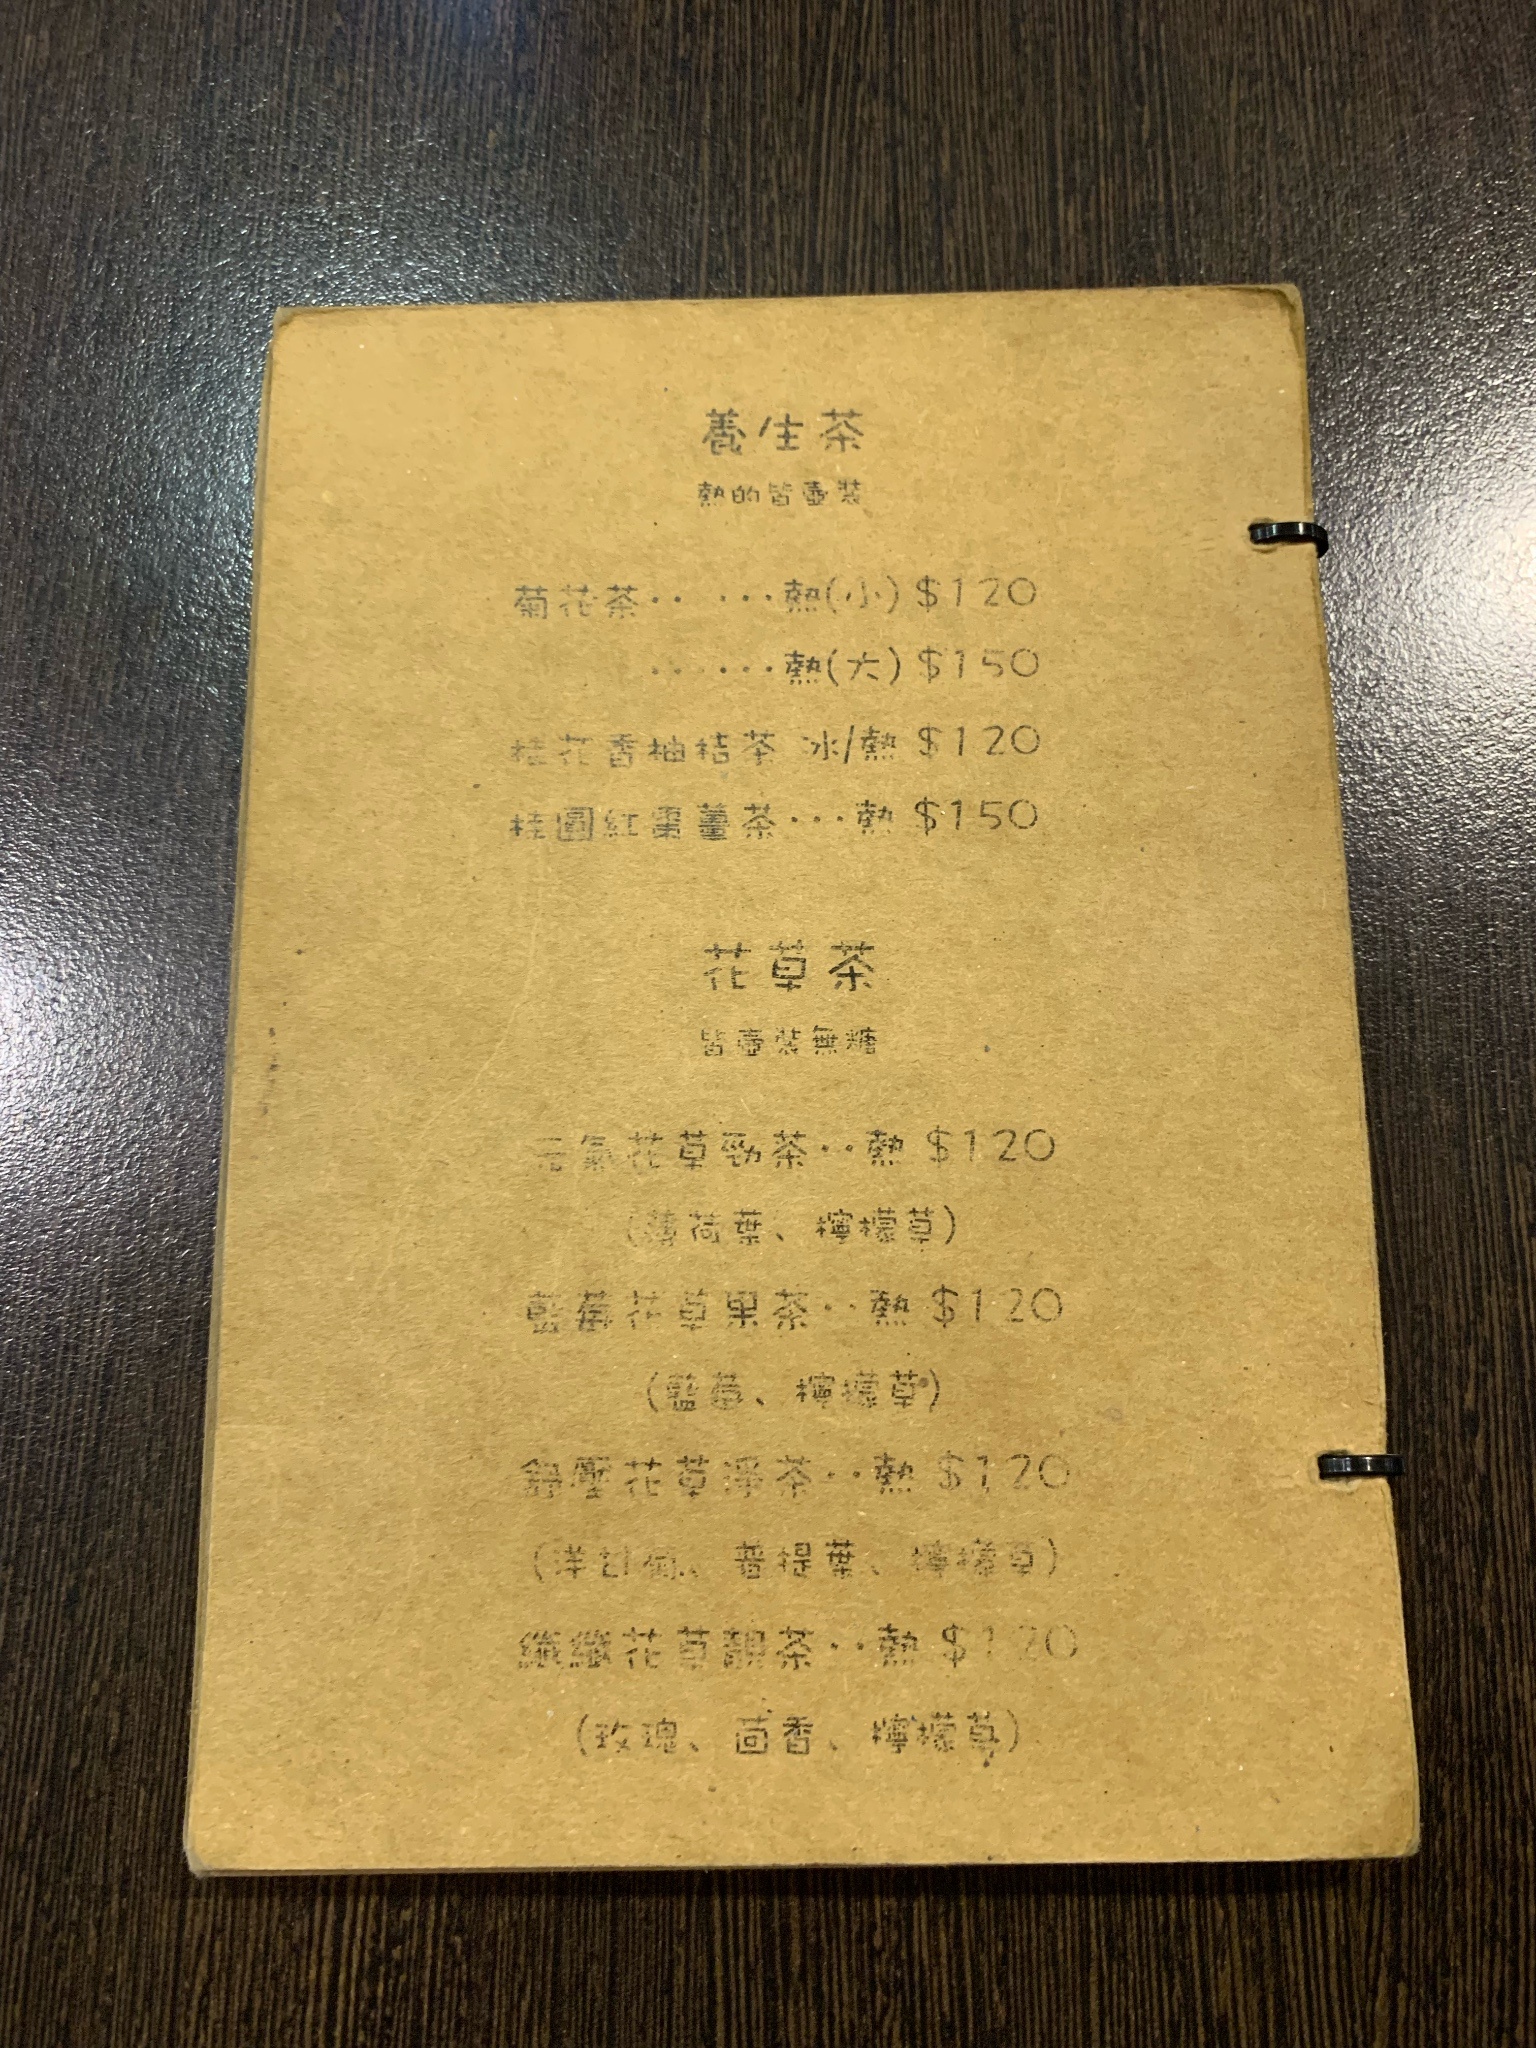 養生茶
熱的皆壺裝
菊花茶‥ ‥‥熱(小) $120
‥ ‥‥熱(大) $150
桂花香柚桔茶 冰/熱 $120
桂圓紅棗薑茶‥‥熱 $150
花草茶
皆壺裝無糖
元氣花草勁茶‥熱 $120
(薄荷葉、檸檬草)
藍莓花草果茶‥熱 $120
(藍莓、檸檬草)
舒壓花草淨茶‥熱 $120
(洋甘菊、菩提葉、檸檬草)
纖纖花草靚茶‥熱 $120
(玫瑰、茴香、檸檬草)